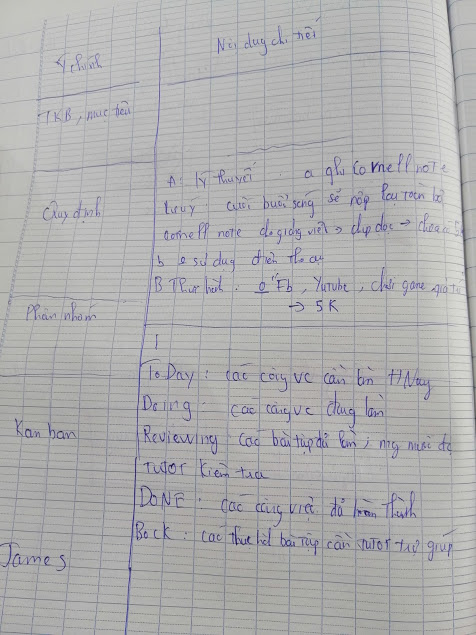 Ý chính
Nội dung chi tiết
TKB, mục tiêu
Quy định
A. Lý thuyết a ghi Cornell note
Lưu ý: cuối buổi sáng sẽ nộp lại toàn bộ
cornell note cho giảng viên → chụp dọc →
b 0 sử dụng điện thoại
B Thực hành. 0 Fb, Yutube, chơi game
→ 5K
Phân nhóm
Kan ban
To Day: các công vc cần làm
Doing: các công vc đang làm
Reviewing các bài tập đã làm;
TUTOR kiểm tra
DONE: các công việc đã hoàn thành
Bock: các bài tập cần TUTOR trợ giúp
James